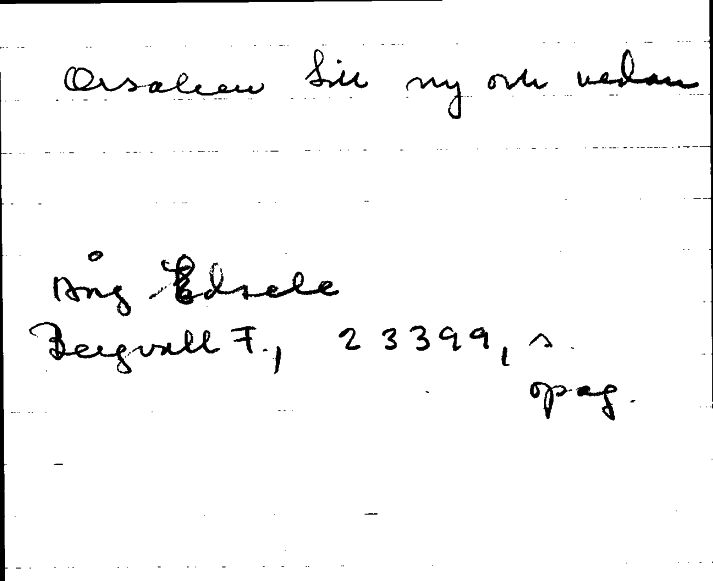 Orsaken till ny och nedan
Ång Edsele
Bergvall F., 23399, s.
opag.